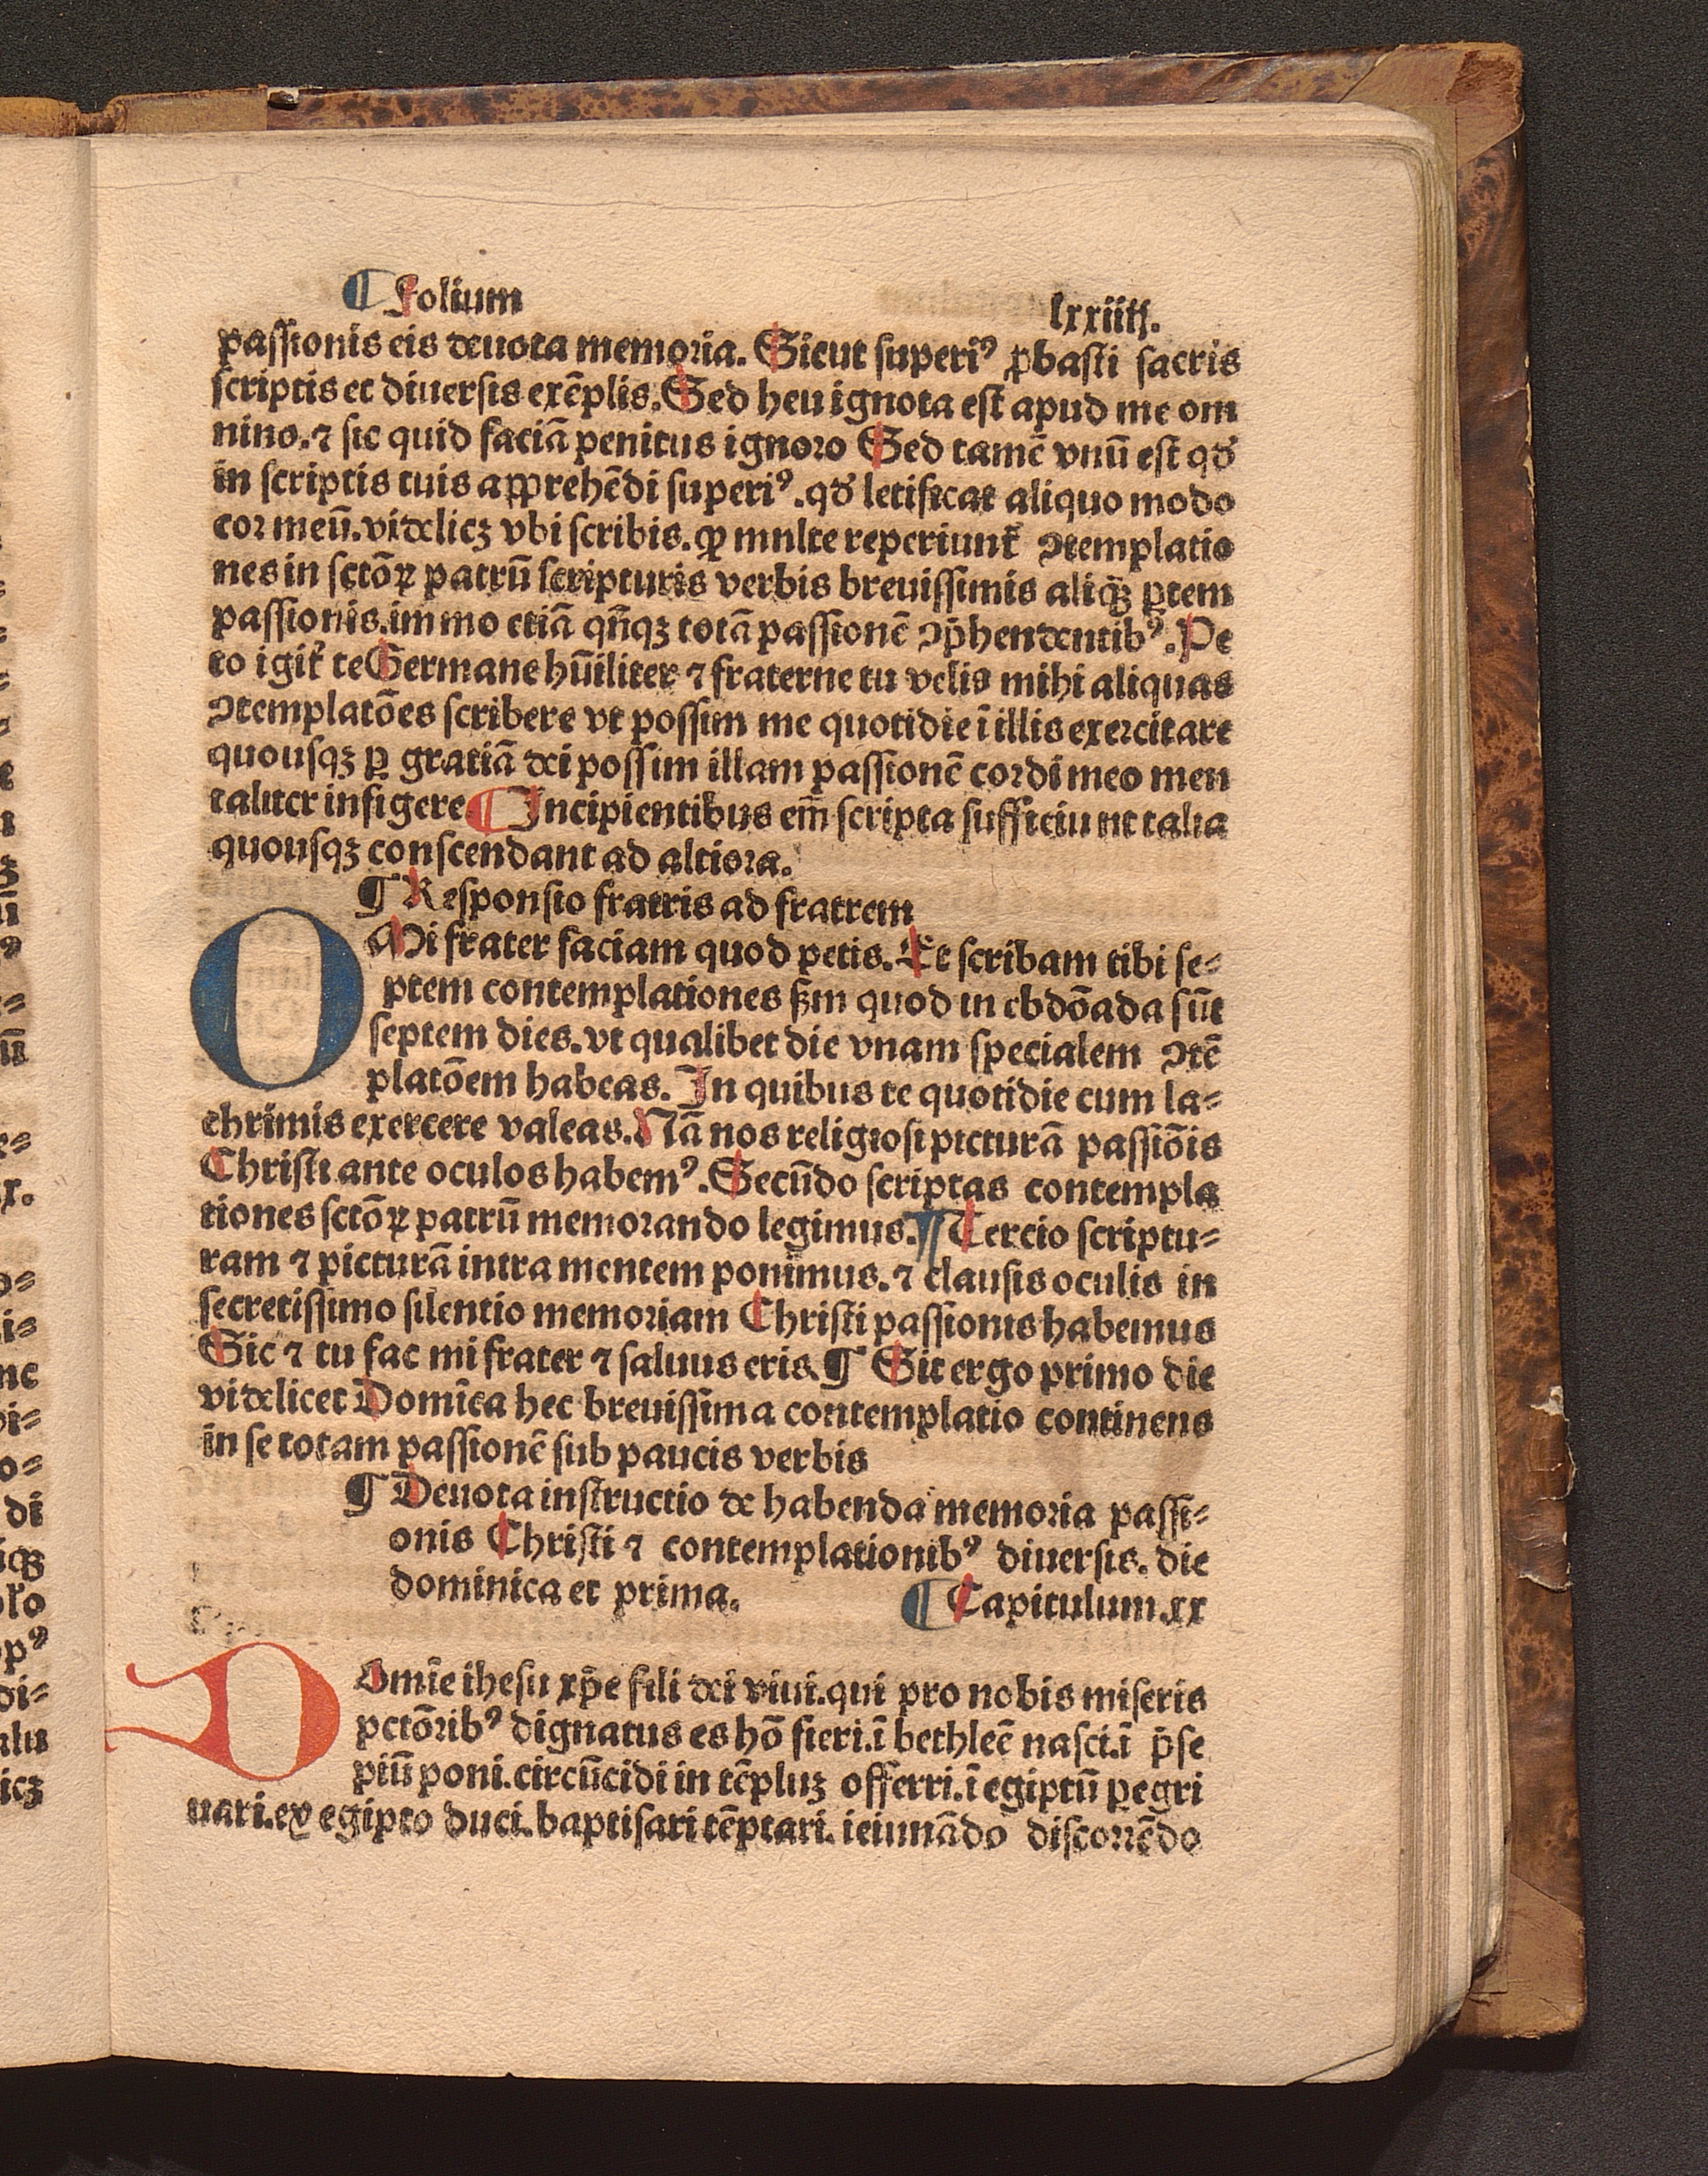 ¶ Folium lxxiiii.
passionis eis deuota memoria. Sicut superiꝰ ꝓbasti sacris
scriptis et diuersis exēplis. Sed heu ignota est apud me om
nino. ⁊ sic quid faciā penitus ignoro Sed tamē vnū est qđ
in scriptis tuis apprehēdi superiꝰ. qđ letificat aliquo modo
cor meū. videlicꝫ vbi scribis. ꝙ mnlte reperiunt᷑ ↄtemplatio
nes in sctōꝝ patrū scripturis verbis breuissimis aliqꝫ ꝑtem
passionis. immo etiā qn̄qꝫ totā passionē ↄp̄hendentibꝰ. Pe
to igit᷑ te Germane hūiliter ⁊ fraterne tu velis mihi aliquas
ↄtemplatōes scribere vt possim me quotidie ī illis exercitare
quousqꝫ ꝑ gratiā dei possim illam passionē cordi meo men
taliter infigere ¶ Incipientibus em̄ scripta sufficiunt talia
quousqꝫ conscendant ad altiora.
¶ Responsio fratris ad fratrem
O Mi frater faciam quod petis. Et scribam tibi se⸗
ptem contemplationes ẜm quod in ebdōada sūt
septem dies. vt qualibet die vnam specialem ↄtē
platōem habeas. In quibus te quotidie cum la⸗
chrimis exercere valeas. Nā nos religiosi picturā passiōis
Christi ante oculos habemꝰ. Secūdo scriptas contempla
tiones sctōꝝ patrū memorando legimus. ¶ Tercio scriptu⸗
ram ⁊ picturā intra mentem ponimus. ⁊ clausis oculis in
secretissimo silentio memoriam Christi passionis habemus
Sic ⁊ tu fac mi frater ⁊ saluus eris. ¶ Sit ergo primo die
videlicet Domīca hec breuissima contemplatio continens
in se totam passionē sub paucis verbis
¶ Deuota instructio de habenda memoria passi⸗
onis Christi ⁊ contemplationibꝰ diuersis. die
dominica et prima. ¶ Capitulum.xx
D Omīe ihesu xp̄e fili dei viui. qui pro nobis miseris
pctōribꝰ dignatus es hō fieri. ī bethleē nasci. ī p̄se
piū poni. circūcidi in tēpluꝫ offerri. ī egiptū ꝑegri
uari. ex egipto duci. baptisari tēptari. ieiunādo discorrēdo